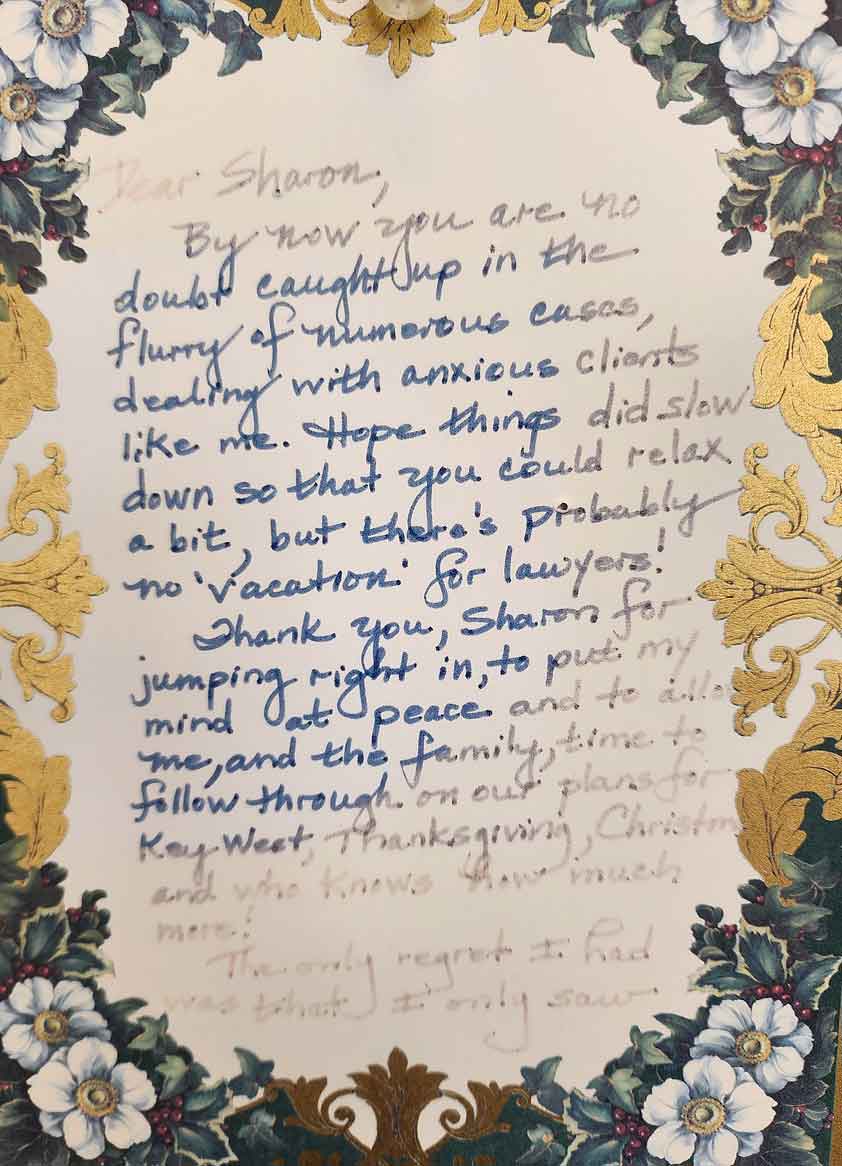 Dear Sharon,
By now you are no
doubt caught up in the
flurry of numerous cases,
dealing with anxious clients
like me. Hope things did slow
down so that you could relax
a bit, but there's probably
no 'vacation' for lawyers!
Thank you, Sharon for
jumping right in, to put my
mind at peace and to allo
me, and the family, time to
follow through on our plans for
Key West, Thanksgiving, Christm
and who knows how much
more!
The only regret I had
was that I only saw